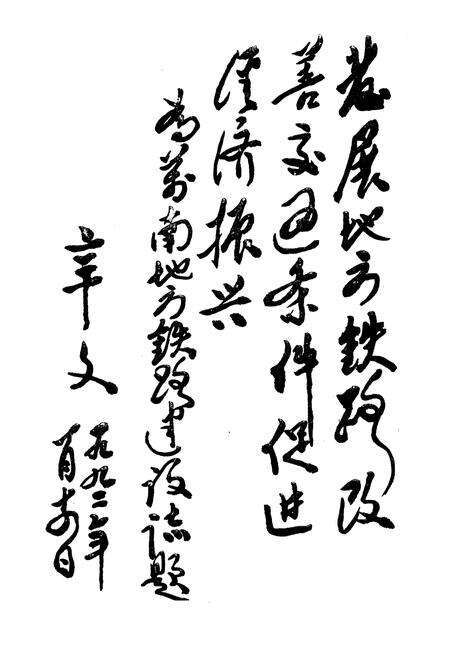 发展地方铁路改
善交通条件促进
经济振兴
为萬南地方铁路建设志题
辛文
一九九二年
月 日